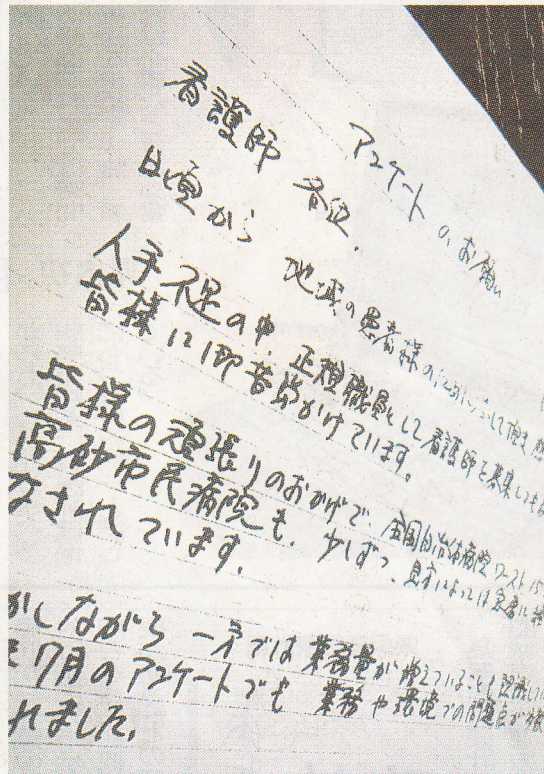 アンケートのお願い
看護師 各位.
日頃から 地域の患者様の
人手不足の中、正規職員として看護師を募集しても
皆様に御苦労かけています。
皆様の頑張りのおかげで、全国自治体病院ワースト
高砂市民病院も、少しずつ、見方によっては急速に
なされています。
かしながら 一方では 業務量が増えていることも認識い
7月のアンケートでも 業務や環境での問題点が
れました。